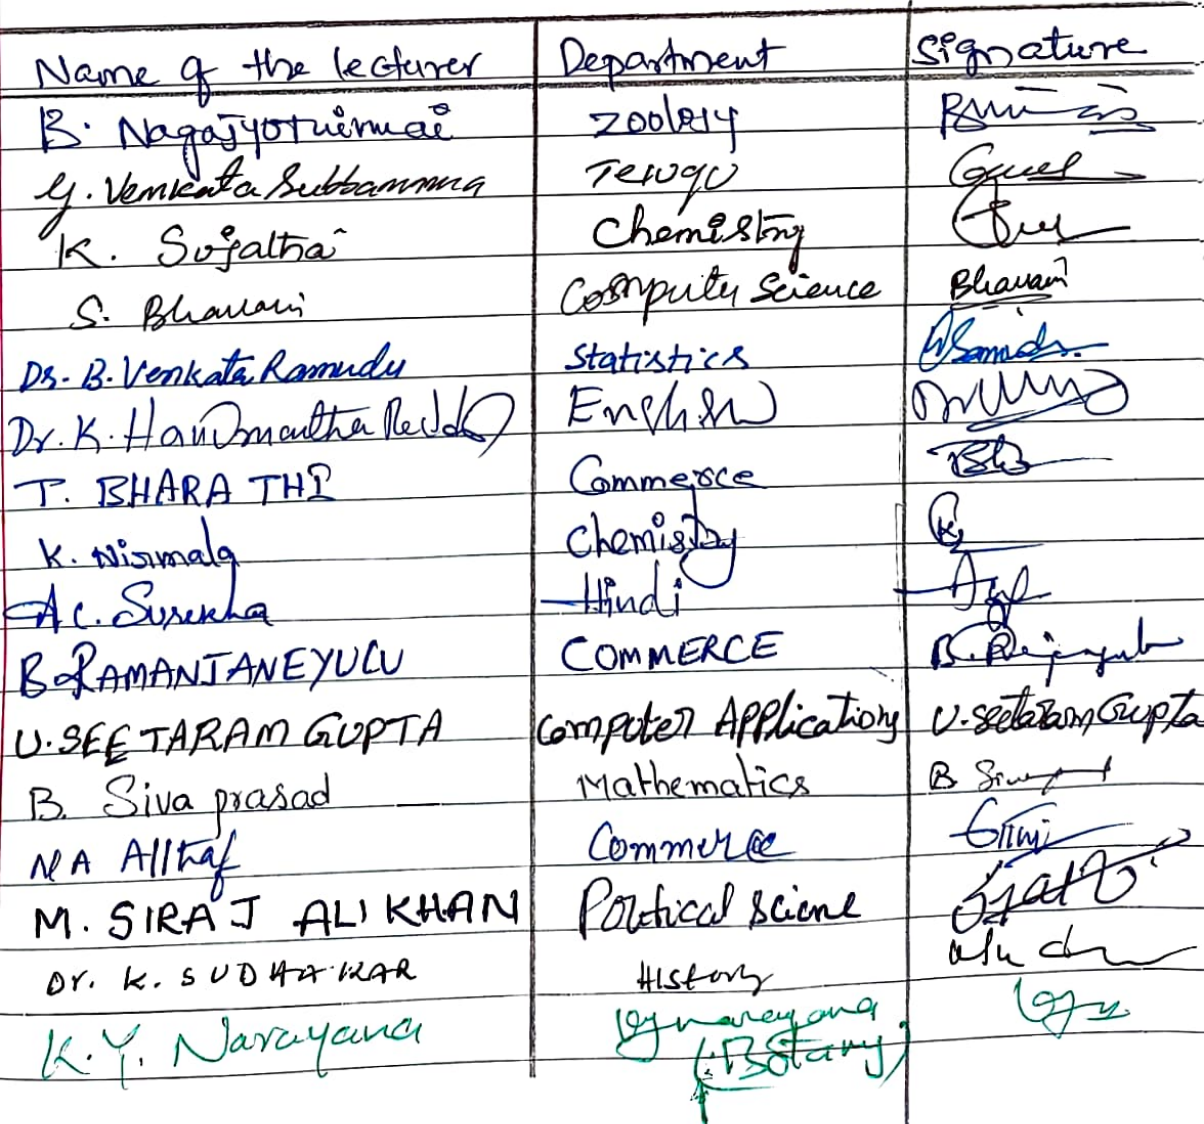 Name of the lecturer Department Signature
B. Nagajyothirmai Zoology
G. Venkata Subbamma Telugu
K. Sujatha Chemistry
S. Bhavani Computer Science Bhavani
Dr. B. Venkata Ramudu Statistics
Dr. K. Hanumantha Reddy English
T. BHARATHI Commerce
K. Nirmala Chemistry
A C. Surekha Hindi
B. RAMANJANEYULU COMMERCE
U. SEETARAM GUPTA Computer Applications U. Seetaram Gupta
B. Siva prasad Mathematics
M A Althaf Commerce
M. SIRAJ ALI KHAN Political Science
Dr. K. SUDHAKAR History
K.Y. Narayana kynarayana
(Botany)